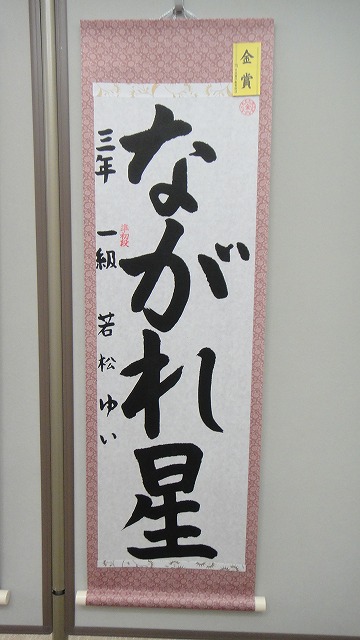 金賞
ながれ星
三年 一級 若松ゆい
準初段